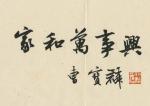 家和萬事興
曹寶祿